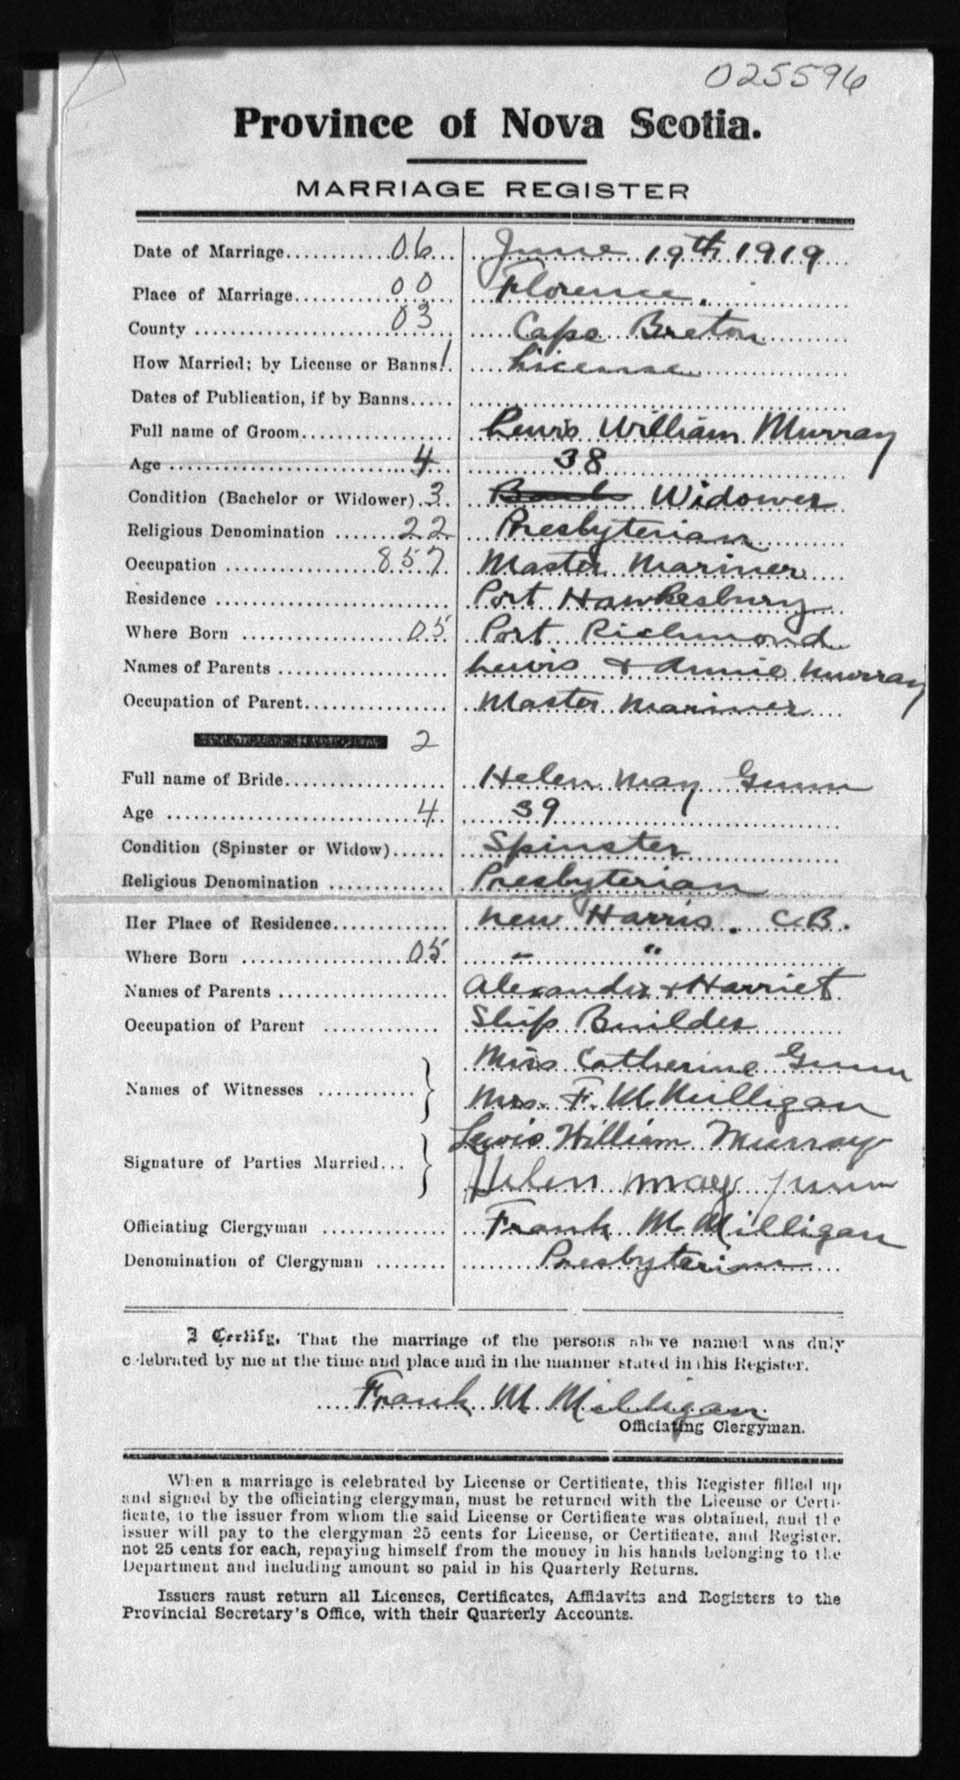 025596
Province of Nova Scotia.
MARRIAGE REGISTER
Date of Marriage............06... June 19th 1919
Place of Marriage............00 Florence.
County ............03 Cape Breton
How Married; by License or Banns 1. License
Dates of Publication, if by Banns.....
Full name of Groom............ Lewis William Murray
Age ............4 38
Condition (Bachelor or Widower).3. Bach Widower
Religious Denomination ......22 Presbyterian
Occupation ............857 Master Mariner
Residence ............ Port Hawkesbury
Where Born ............05 Port Richmond
Names of Parents ............ Lewis & Annie Murray
Occupation of Parent............ Master Mariner
2
Full name of Bride............ Helen May Gunn
Age ............4 39
Condition (Spinster or Widow)...... Spinster
Religious Denomination ............ Presbyterian
Her Place of Residence............ New Harris. C.B.
Where Born ............05 " "
Names of Parents ............ Alexander & Harriet
Occupation of Parent ............ Ship Builder
Miss Catherine Gunn
Names of Witnesses ............
Mrs. F. M. Milligan
Lewis William Murray
Signature of Parties Married...
Helen May Gunn
Officiating Clergyman ............ Frank M. Milligan
Denomination of Clergyman ........ Presbyterian
I Certify, That the marriage of the persons above named was duly
celebrated by me at the time and place and in the manner stated in this Register.
Frank M Milligan
Officiating Clergyman.
When a marriage is celebrated by License or Certificate, this Register filled up
and signed by the officiating clergyman, must be returned with the License or Certi-
ficate, to the issuer from whom the said License or Certificate was obtained, and the
issuer will pay to the clergyman 25 cents for License, or Certificate, and Register,
not 25 cents for each, repaying himself from the money in his hands belonging to the
Department and including amount so paid in his Quarterly Returns.
Issuers must return all Licenses, Certificates, Affidavits and Registers to the
Provincial Secretary's Office, with their Quarterly Accounts.